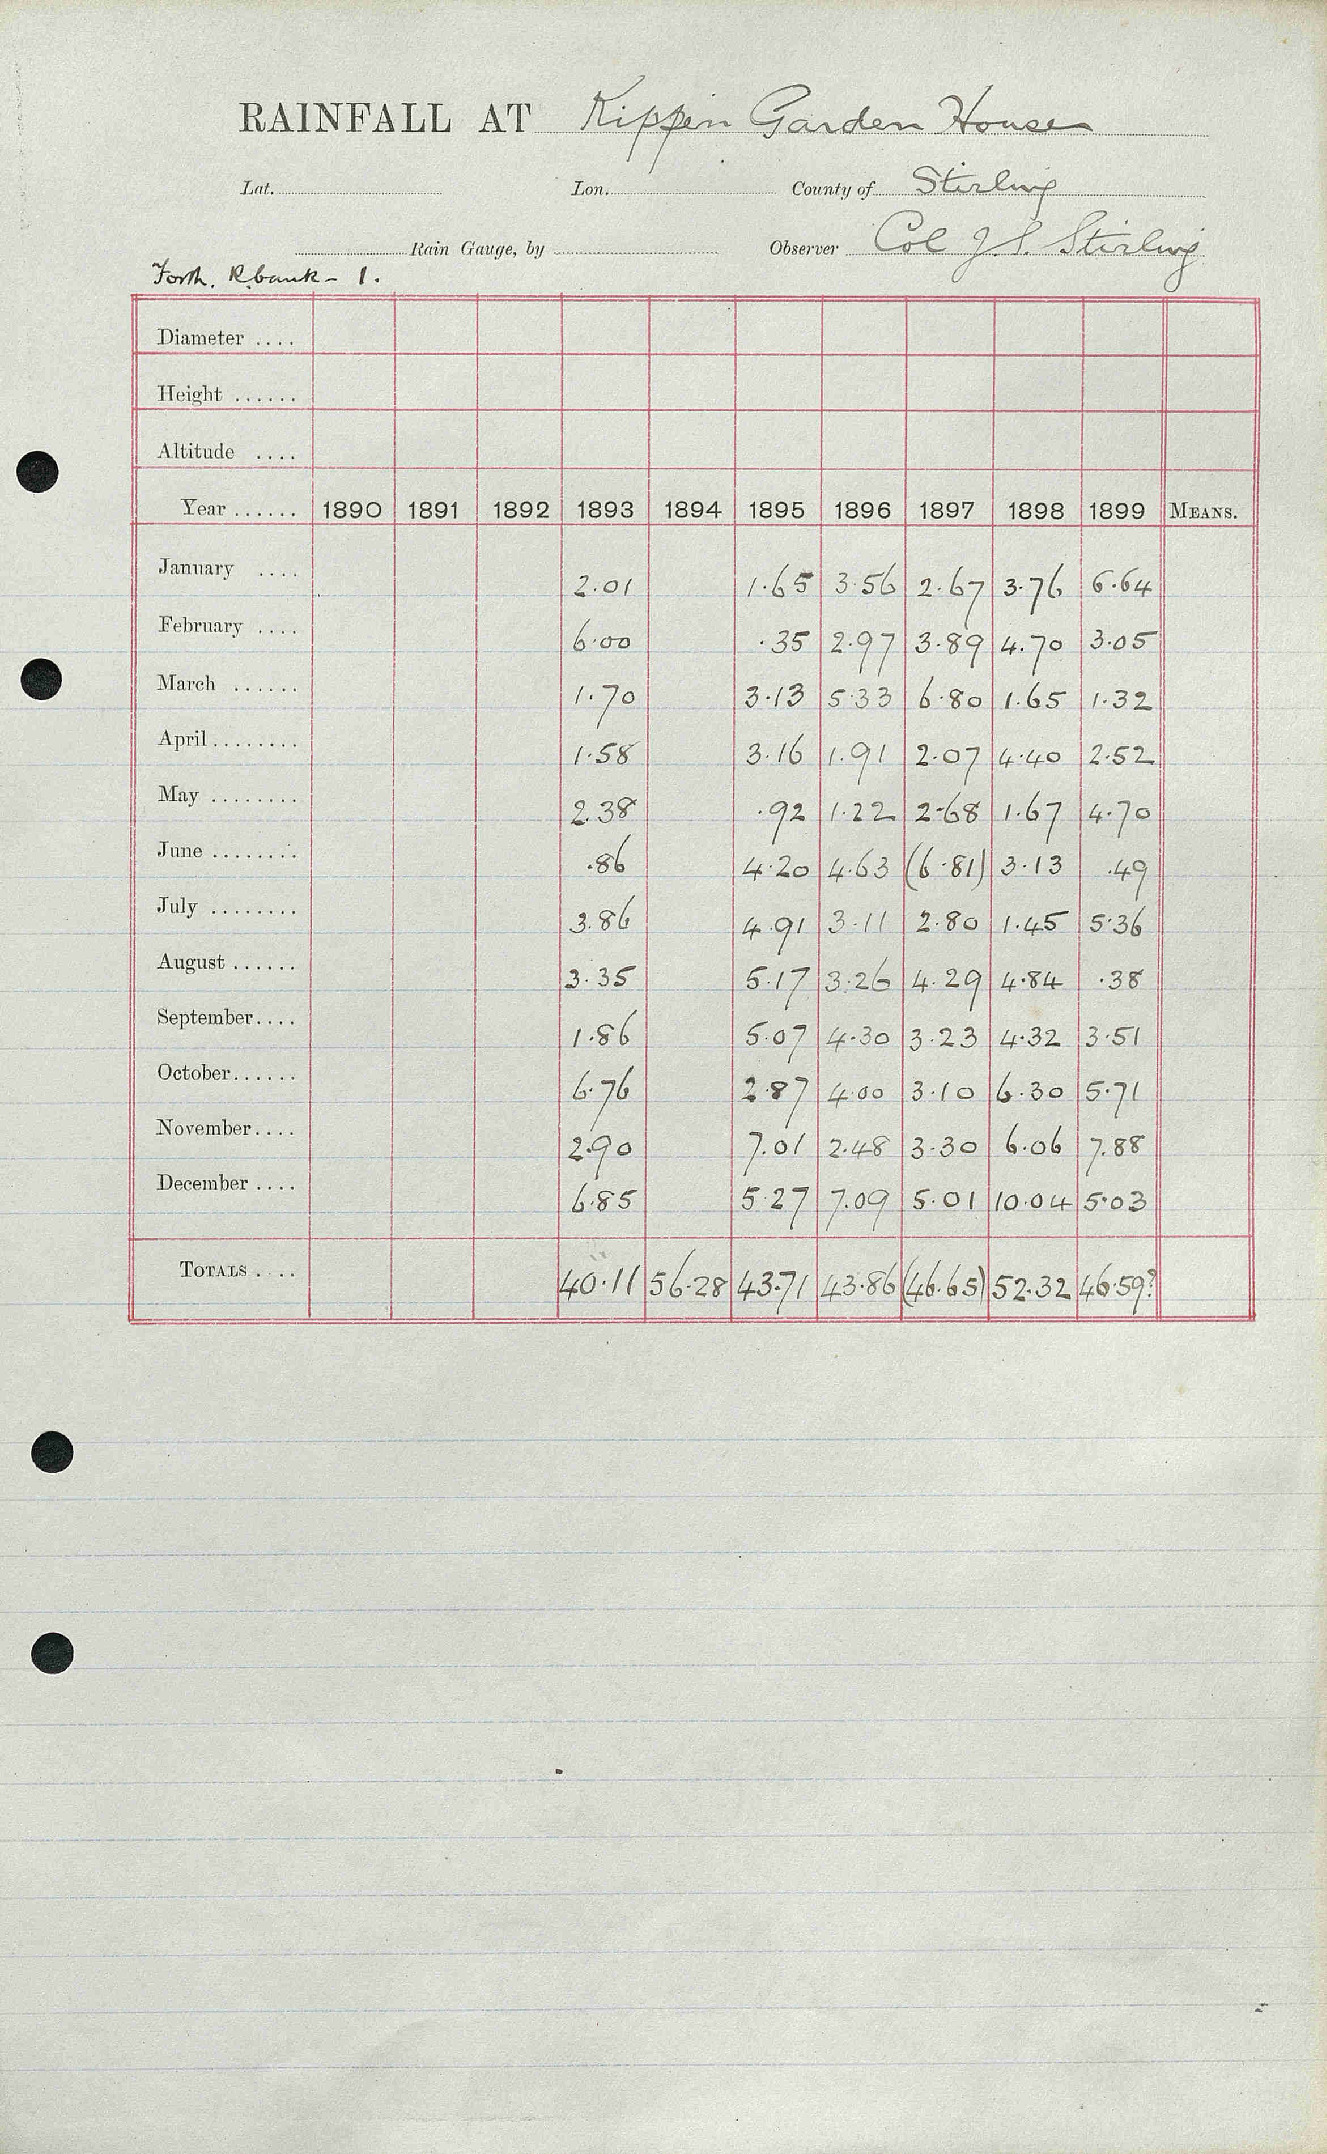 RAINFALL AT Kippen Garden House
Lat. Lon. County of Stirling
Rain Gauge, by Observer Col J. S. Stirling
Forth. R. bank - 1.
Diameter ....
Height ......
Altitude ....
Year ...... 1890 1891 1892 1893 1894 1895 1896 1897 1898 1899 MEANS.
January .... 2.01 1.65 3.56 2.67 3.76 6.64
February .... 6.00 .35 2.97 3.89 4.70 3.05
March ...... 1.70 3.13 5.33 6.80 1.65 1.32
April........ 1.58 3.16 1.91 2.07 4.40 2.52
May ........ 2.38 .92 1.22 2.68 1.67 4.70
June ........ .86 4.20 4.63 (6.81) 3.13 .49
July ........ 3.86 4.91 3.11 2.80 1.45 5.36
August ...... 3.35 5.17 3.26 4.29 4.84 .38
September.... 1.86 5.07 4.30 3.23 4.32 3.51
October...... 6.76 2.87 4.00 3.10 6.30 5.71
November.... 2.90 7.01 2.48 3.30 6.06 7.88
December .... 6.85 5.27 7.09 5.01 10.04 5.03
TOTALS .... 40.11 56.28 43.71 43.86 (46.65) 52.32 46.59?